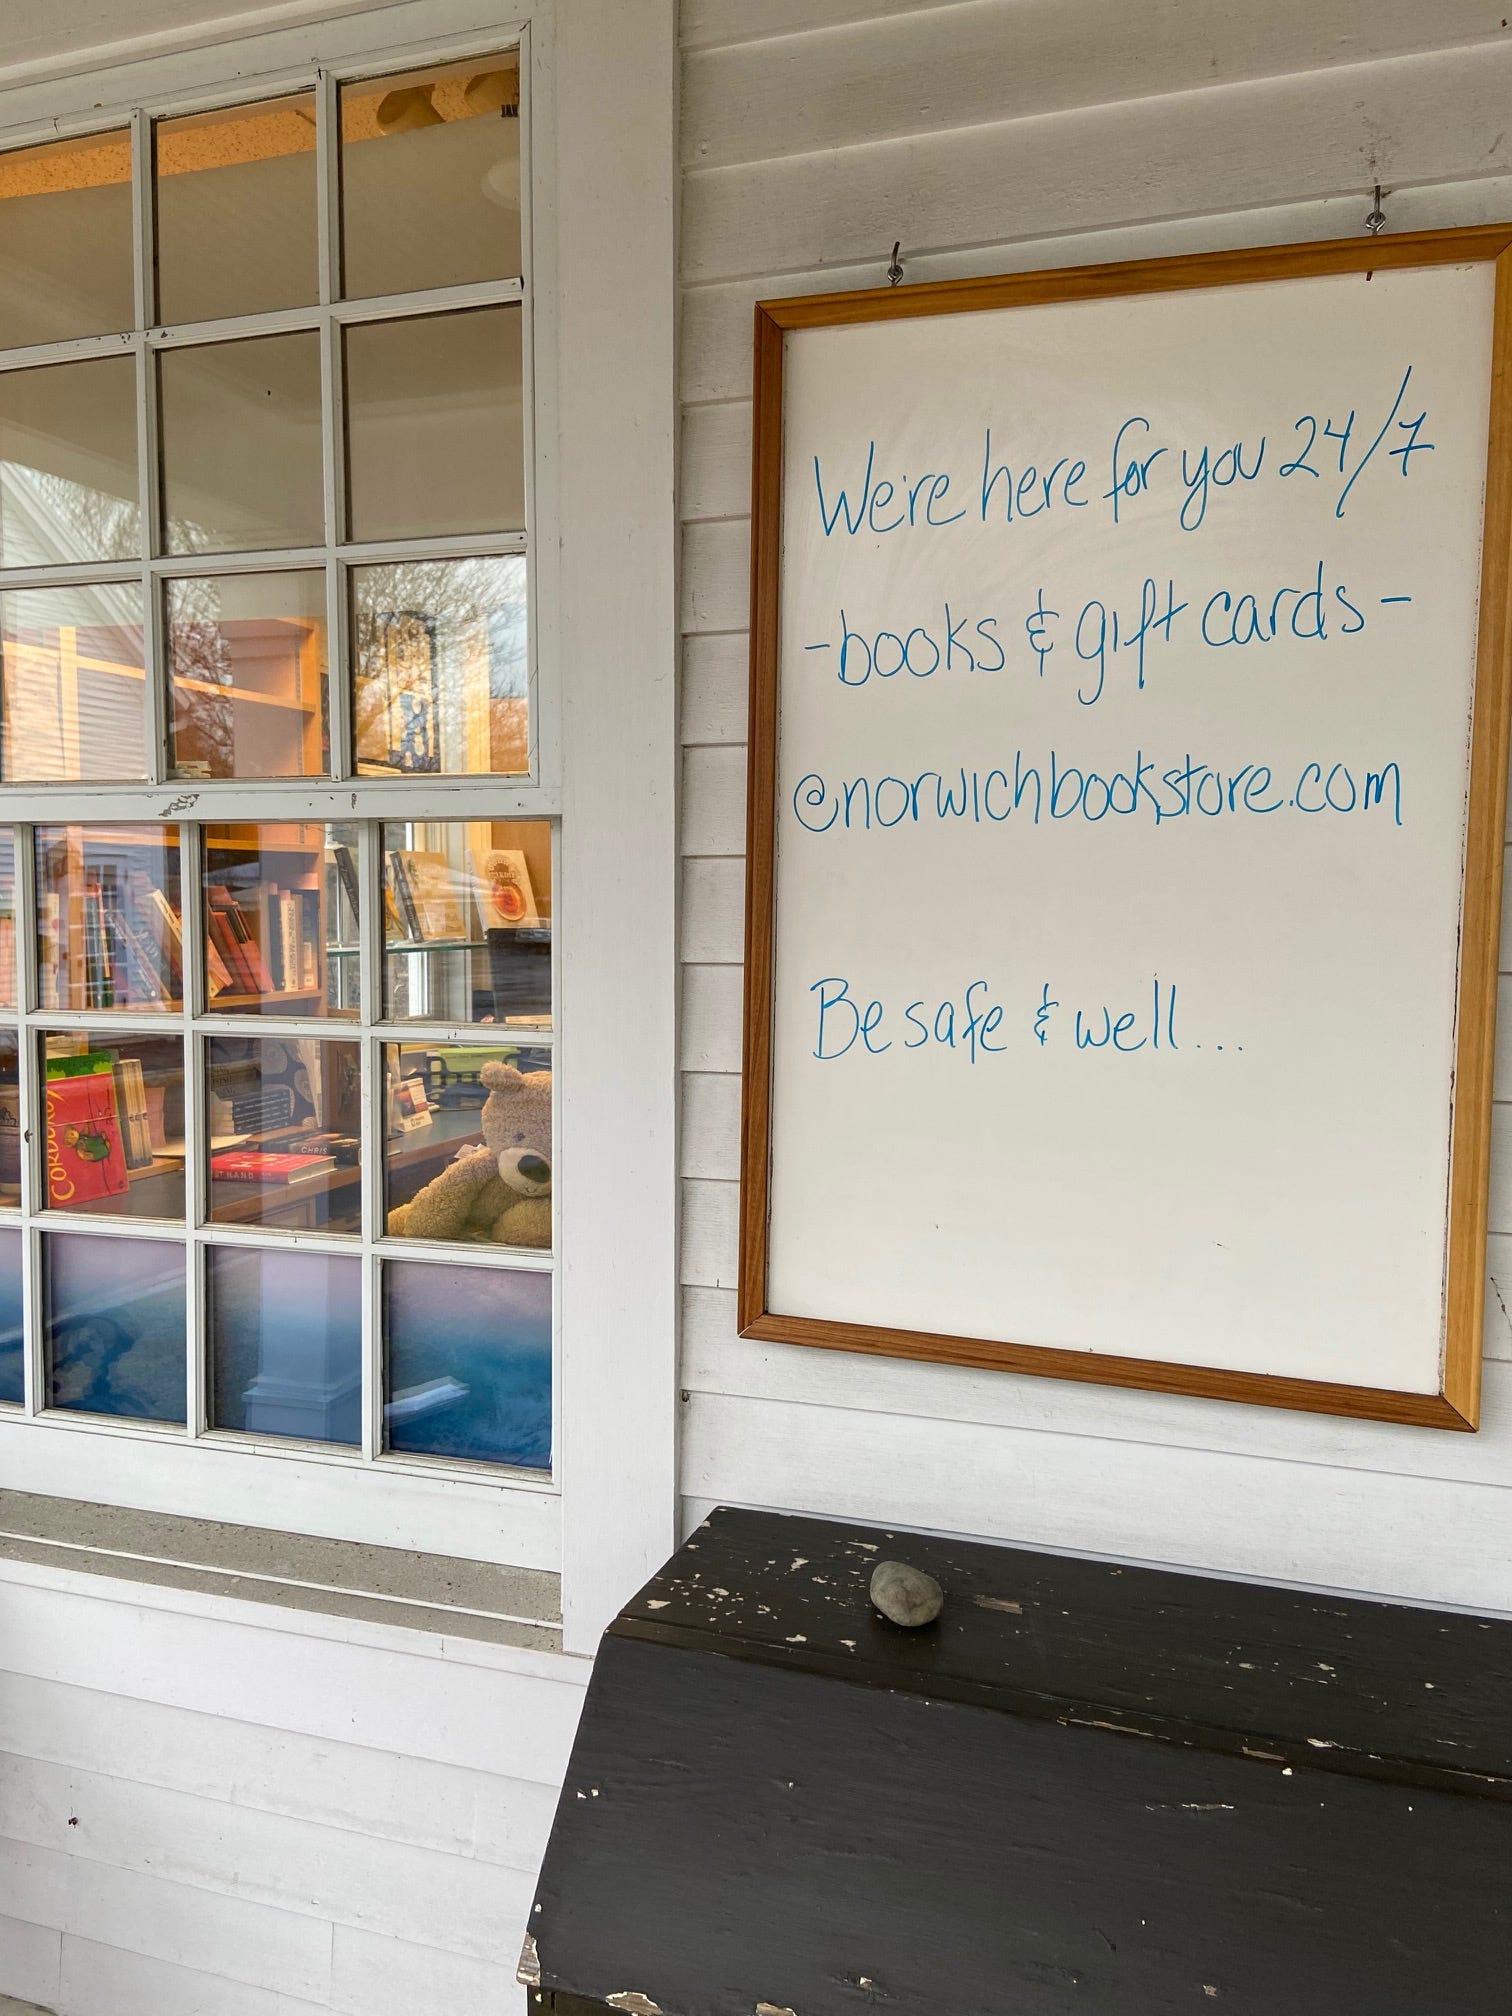 We're here for you 24/7
-books & gift cards-
@norwichbookstore.com
Be safe & well...
CORDUROY
CHRIS
HAND